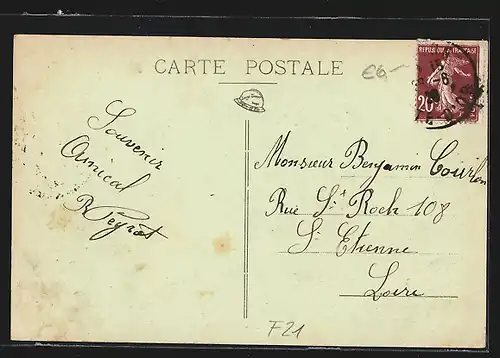 CARTE POSTALE
€6,-
REPUBLIQUE FRANÇAISE
20
Souvenir
Amical
B Peyrat
Monsieur Benjamin Courbon
Rue St Roch 108
St Etienne
Loire
F21